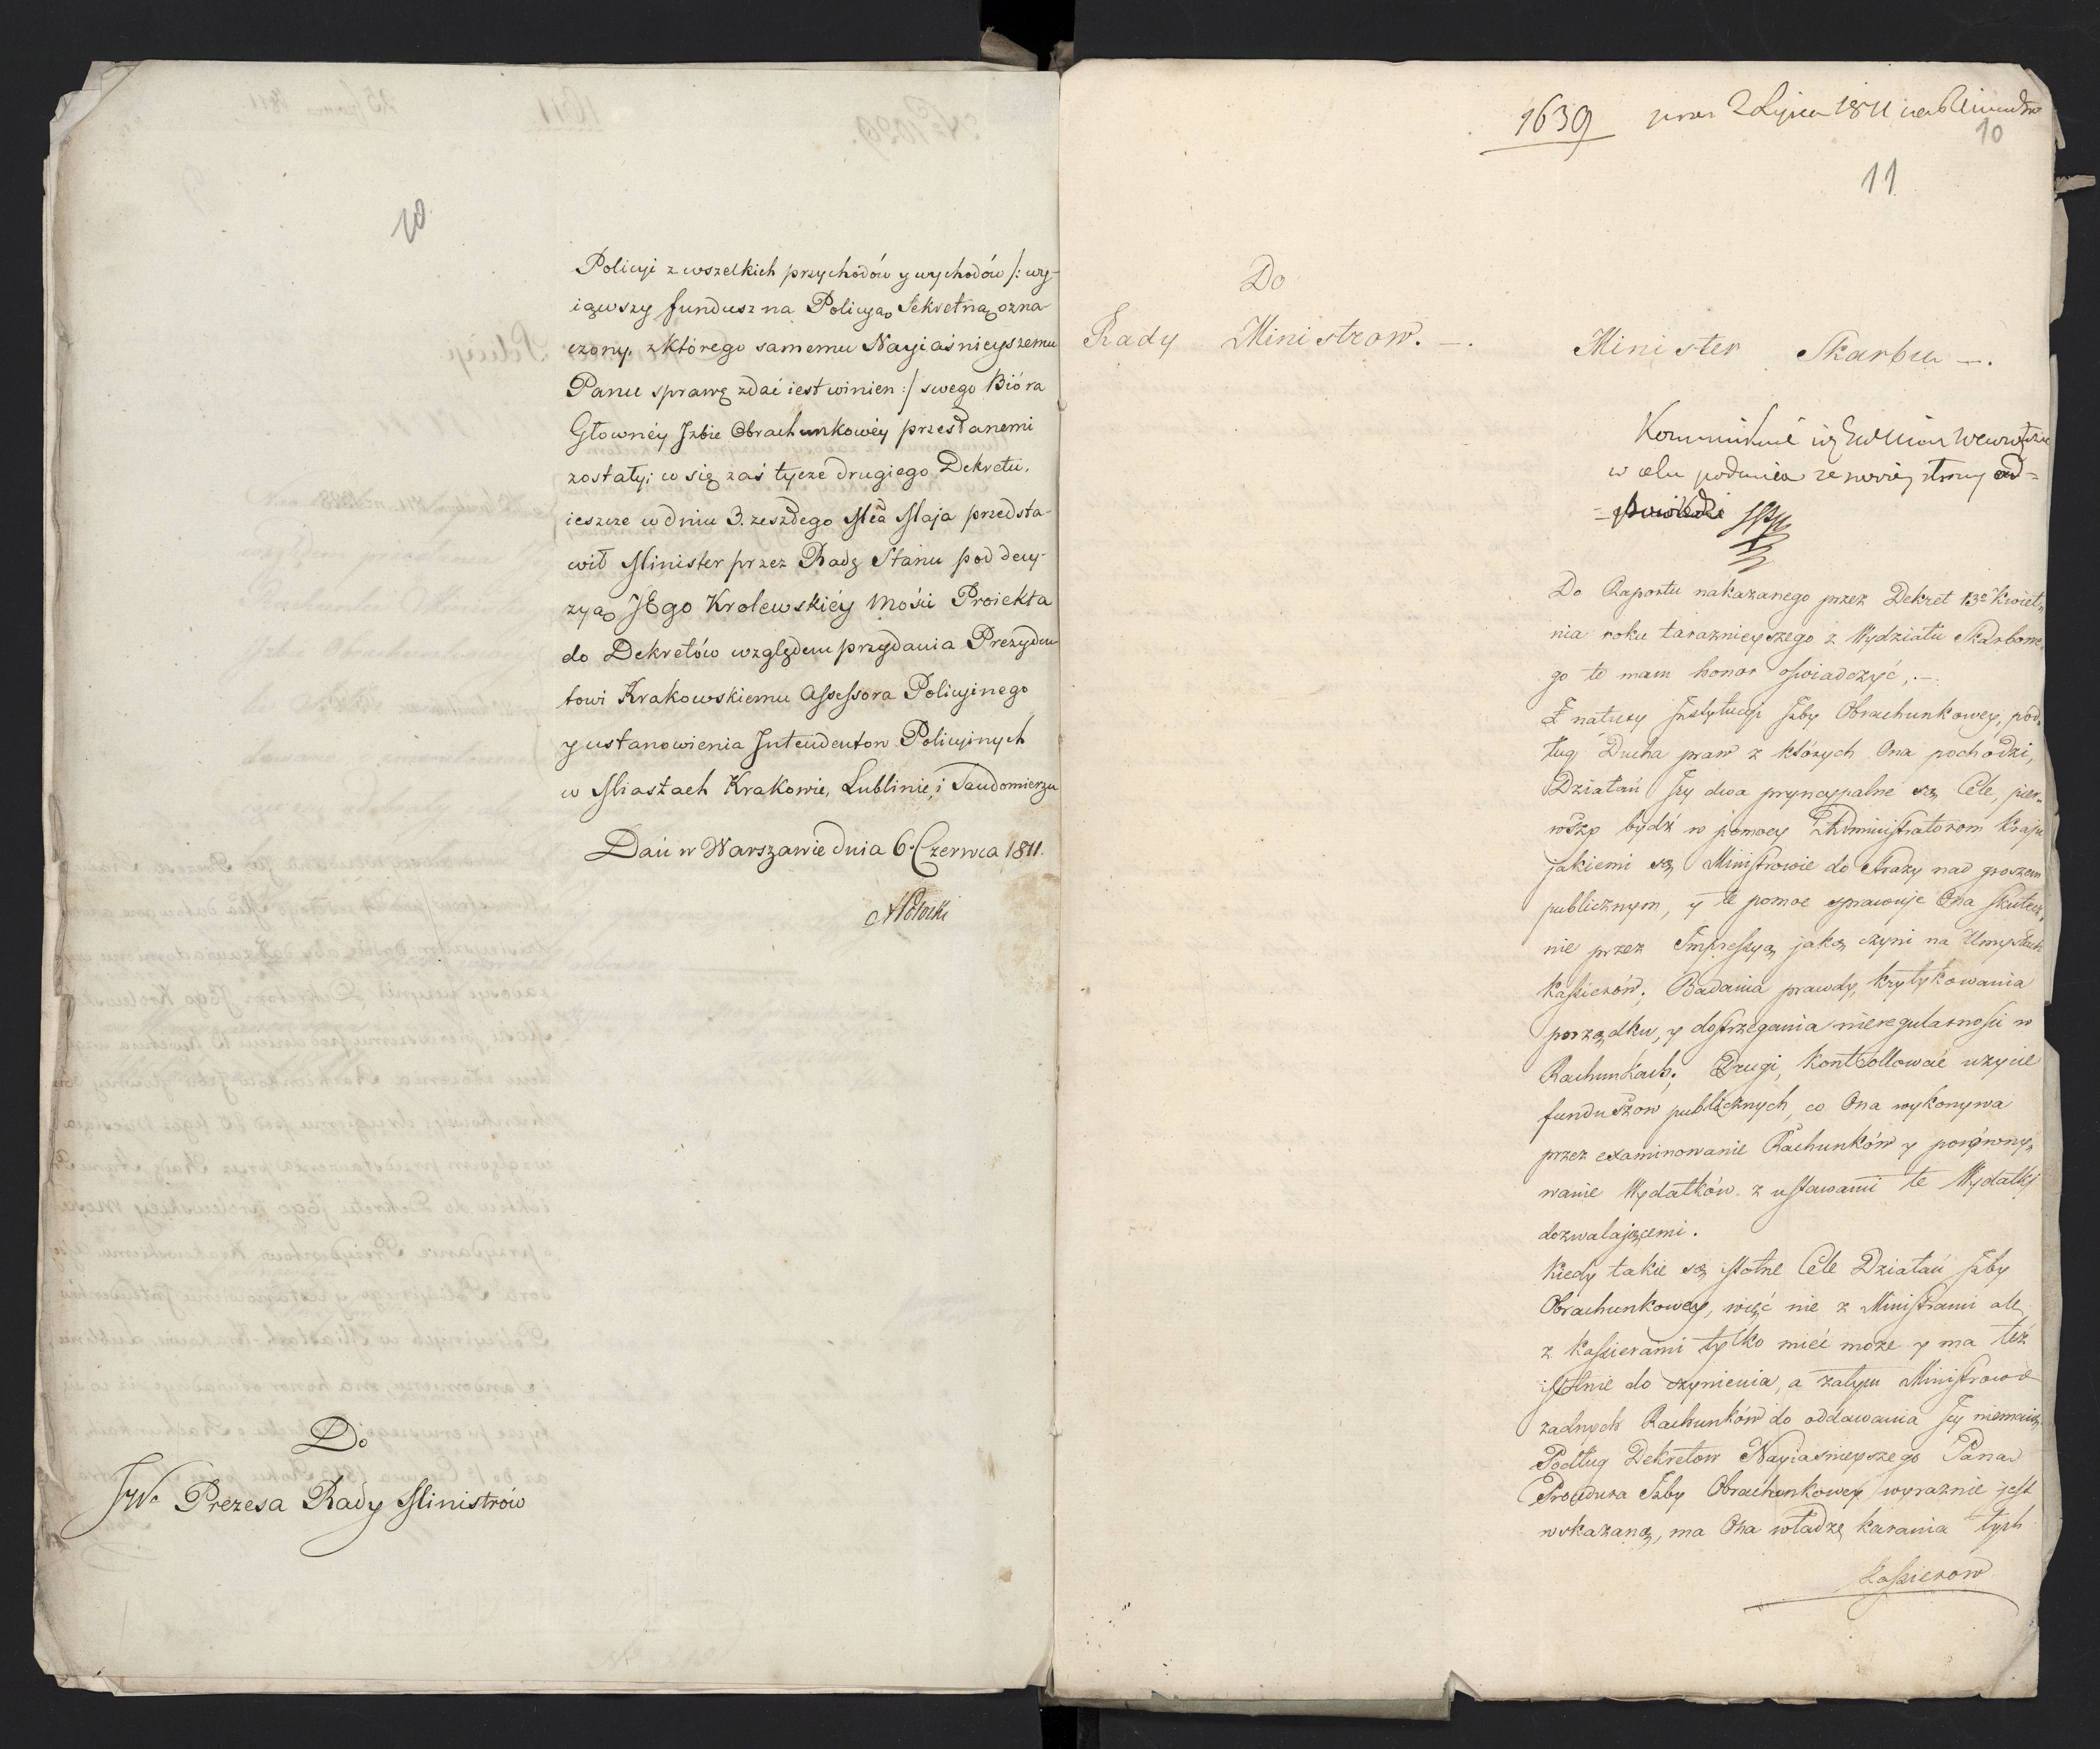 10
Policyi z wszelkich przychodów y wychodów /: wy-
iąwszy fundusz na Policyą Sekretną ozna-
czony, z którego samemu Nayiaśnieyszemu
Panu sprawę zdać iest winien :/ swego Bióra
Głowney Jzbie Obrachunkowéy przesłanemi
zostały; co się zaś tycze drugiego Dekretu,
ieszcze w dniu 3. zeszłego Mca Maja przedsta-
wił Minister przez Radę Stanu pod decy-
zyą JEgo Krolewskiéy Mości Proiekta
do Dekretów względem przydania Prezyden-
towi Krakowskiemu Assessora Policyinego
y ustanowienia Intendentow Policyinych
w Miastach Krakowie, Lublinie, i Sandomierzu
Dań w Warszawie dnia 6. Czerwca 1811.
Potocki
Do
JW. Prezesa Rady Ministrów
1639 2 Lipca 1811
10
11
Do
Rady Ministrow. —.
Minister Skarbu —.
w celu podania ze swoiey strony od=
=powiedzi
Do Raportu nakazanego przez Dekret 13º Kwiet„
nia roku tarazniejszego z Wydziału Skarbowe„
go to mam honor oswiadczyć, .—
Z natury Instytucyi Izby Obrachunkowey, pod„
ług Ducha praw z których Ona pochodzi,
Działań Jey dwa pryncypalne są Cele, pier„
wszy bydź w pomocy Administratorom Kraju
jakiemi są Ministrowie do straży nad groszem
publicznym, y te pomoc sprawuje Ona skutecz„
nie przez Impressyą jaką czyni na Umysłach
Kassierów; Badania prawdy, krytykowania
porządku, y dostrzegania nieregularnosci w
Rachunkach. Drugi, kontrollować uzycie
funduszow publicznych, co Ona wykonywa
przez examinowanie Rachunków y porówny„
wanie Wydatków z ustawami te Wydatki
dozwalającemi.
Kiedy takie są istotne Cele Działań Izby
Obrachunkowey, więc nie z Ministrami ale
z Kassierami tylko mieć może y ma też
istotnie do czynienia, a zatym Ministrowie
żadnych Rachunków do oddawania Jey niemaią.
Podług Dekretow Nayiasnieyszego Pana
Procedura Izby Obrachunkowey wyraznie jest
wskazaną, ma Ona władzę karania tych
Kassierow